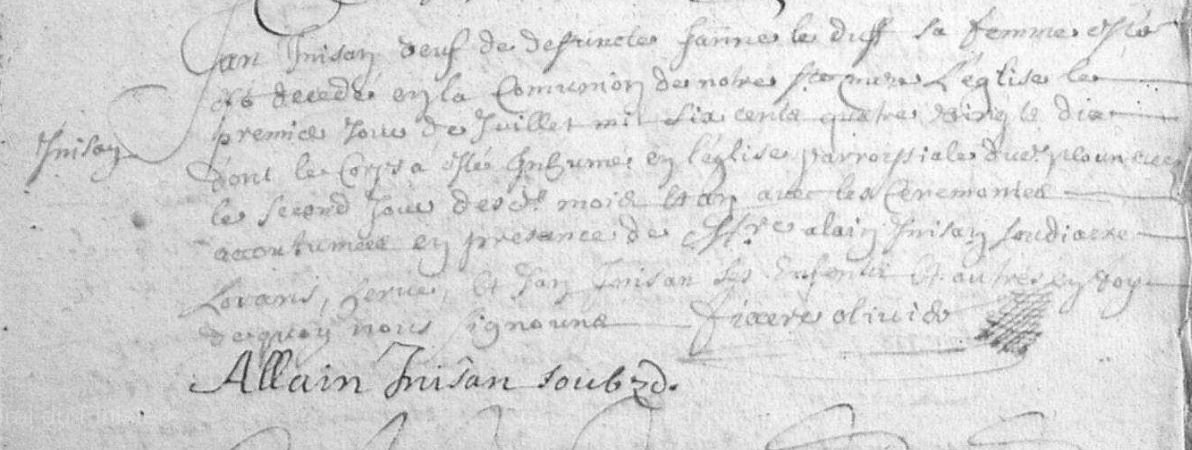 Jan Inisan veuf de defuncte Janne le duff sa femme
est decedé en la Comunion de notre ste mere L'église le
premier Jour de Juillet mil six cents quatre vingts dix
dont le Corps a esté Inhumé en l'église parroissiale du
le second Jour desd. mois et an avec les Ceremonies
acoutumées en presance de alain Inisan soudiacre
Inisan
Lorans, herve, et Jan Inisan ses Enfents et autres en foy
de quoy nous signouns
Allain Inisan soubzd.